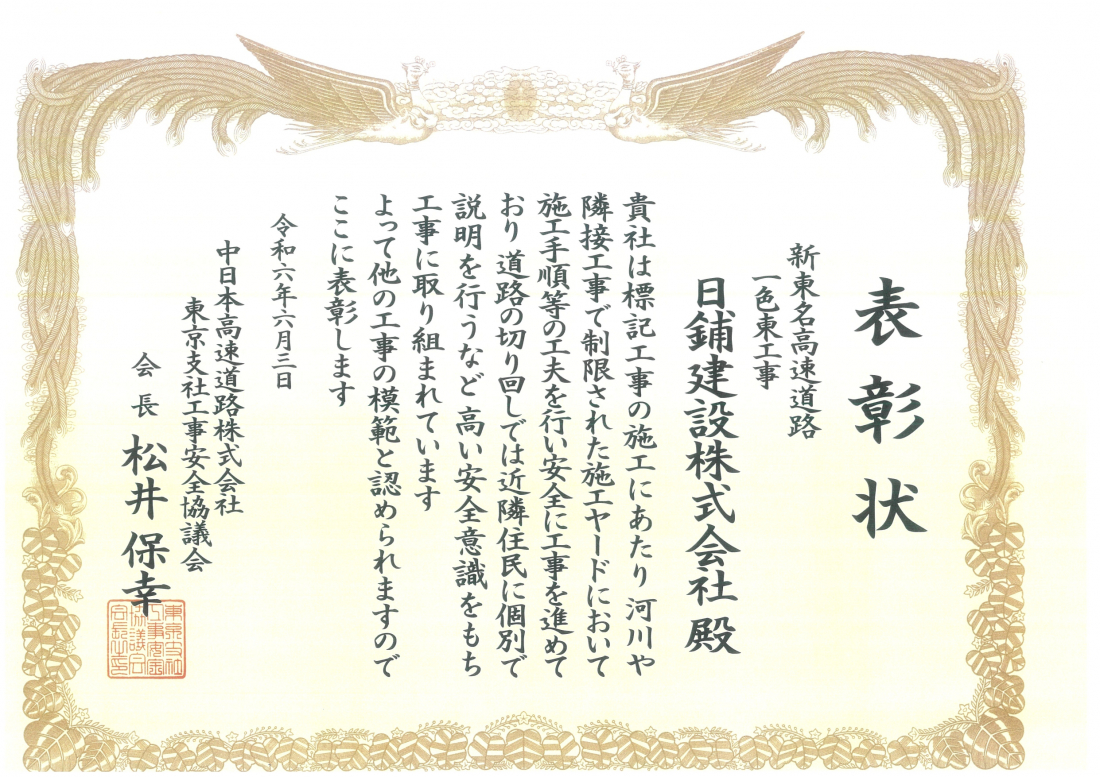 表彰状
新東名高速道路
一色東工事
日鋪建設株式会社 殿
貴社は標記工事の施工にあたり 河川や
隣接工事で制限された施工ヤードにおいて
施工手順等の工夫を行い安全に工事を進めて
おり 道路の切り回しでは近隣住民に個別で
説明を行うなど 高い安全意識をもち
工事に取り組まれています
よって他の工事の模範と認められますので
ここに表彰します
令和六年六月三日
中日本高速道路株式会社
東京支社工事安全協議会
会長 松井保幸
東京支社
工事安全
協議会
会長之印